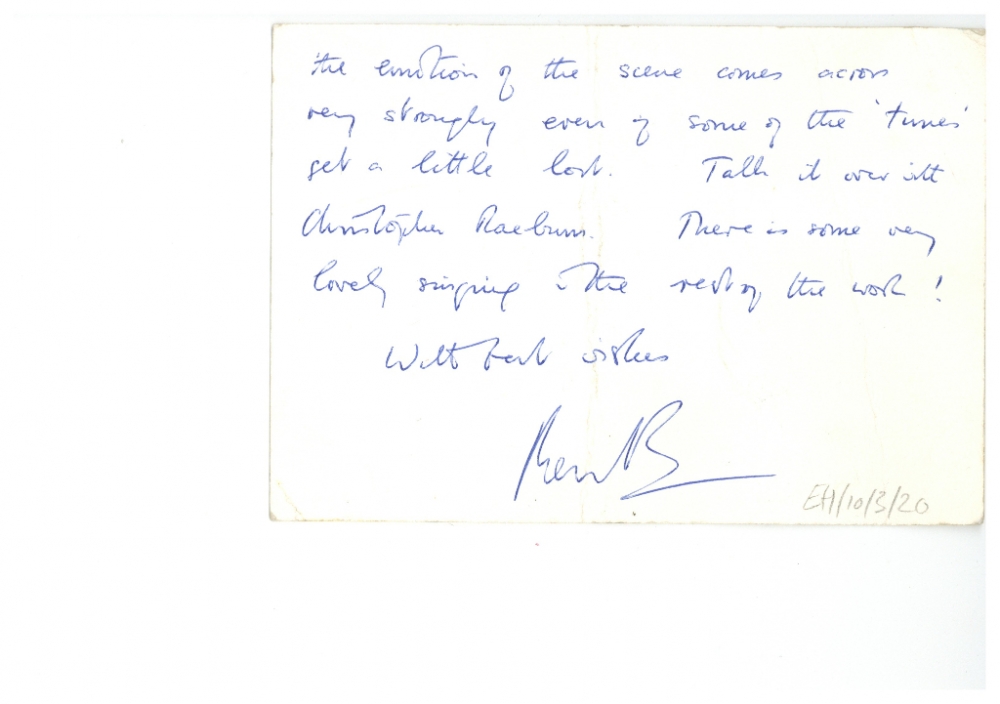 the emotion of the scene comes across
very strongly even if some of the 'tunes'
get a little lost. Talk it over with
Christopher Raeburn. There is some very
lovely singing in the rest of the work!
With best wishes
EH/10/3/20